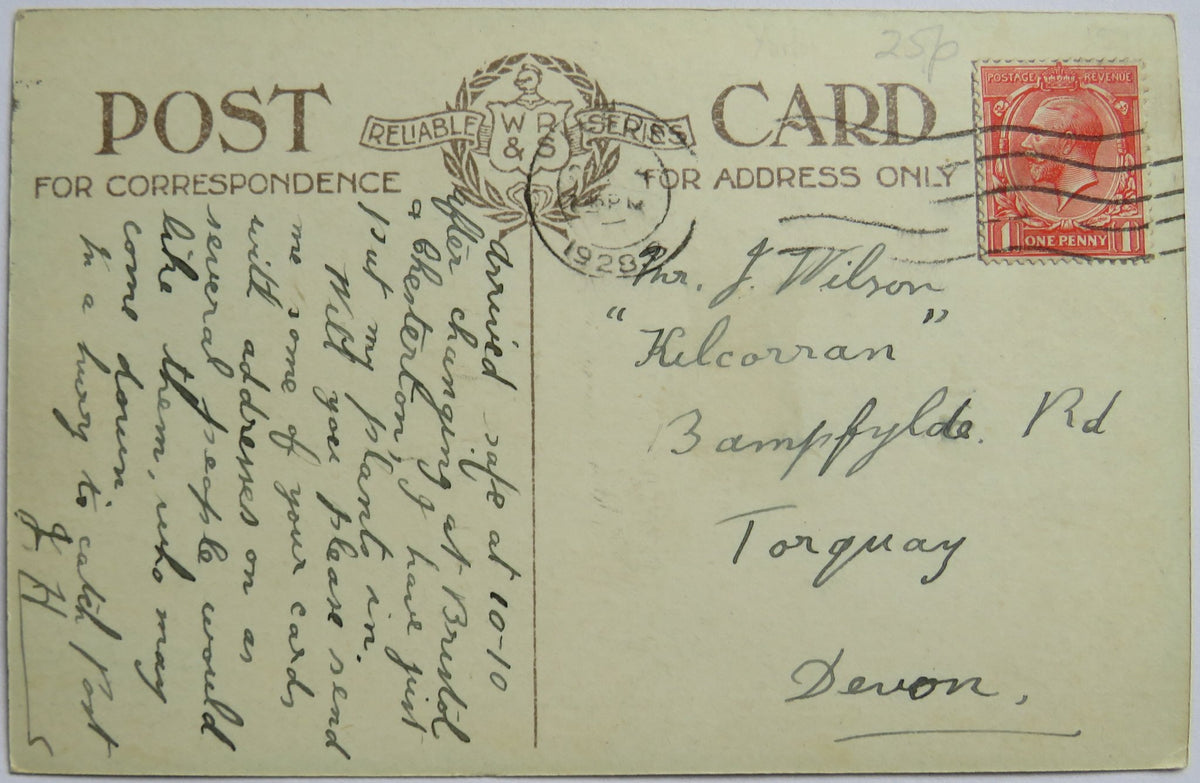 25p
POST CARD
RELIABLE WR & S SERIES
FOR CORRESPONDENCE
FOR ADDRESS ONLY
POSTAGE REVENUE
1 ONE PENNY 1
1928
Arrived safe at 10-10
after changing at Bristol
& Chesterton, I have just
put my plants in.
Will you please send
me some of your cards
with addresses on as
several people would
like them, who may
come down.
In a hurry to catch Post
J. H
Mr. J. Wilson
"Kilcorran"
Bampfylde. Rd
Torquay
Devon,